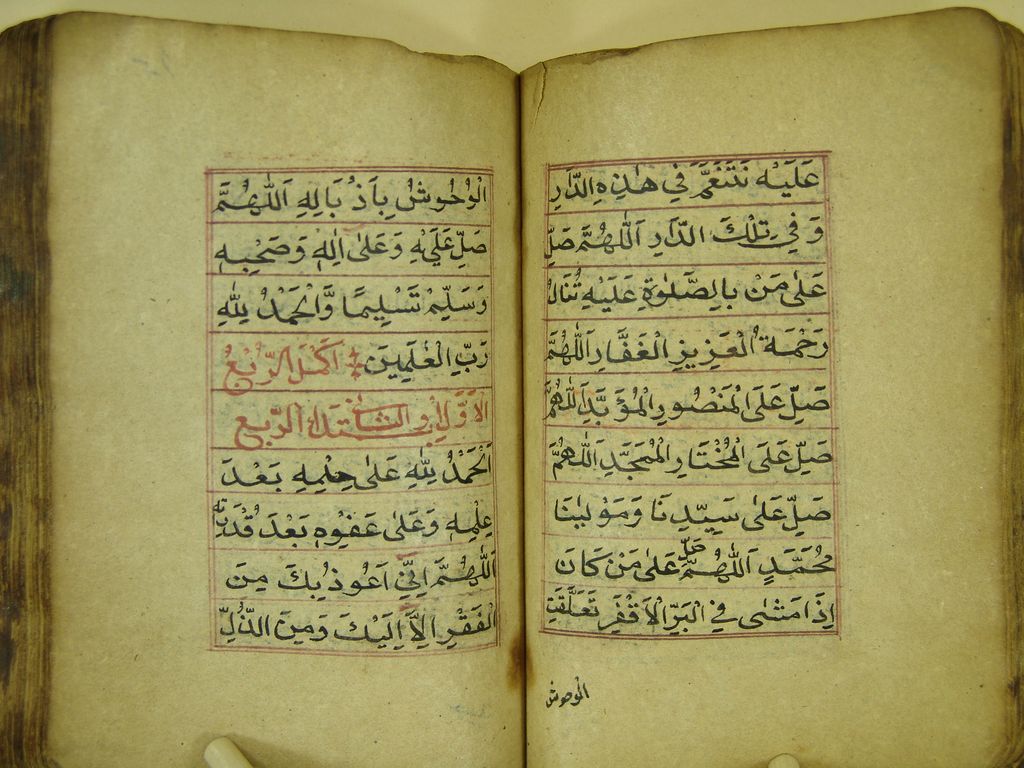 عَلَيْهِ نَتَنَعَّمَ فِي هٰذِهِ الدَّارِ
وَفِي تِلْكَ الدَّارِ اَللّٰهُمَّ صَلِّ
عَلٰى مَنْ بِالصَّلٰوةِ عَلَيْهِ تُنَالُ
رَحْمَةُ الْعَزِيزِ الْغَفَّارِ اَللّٰهُمَّ
صَلِّ عَلَى الْمَنْصُورِ الْمُؤَيَّدِ اَللّٰهُمَّ
صَلِّ عَلَى الْمُخْتَارِ الْمُمَجَّدِ اَللّٰهُمَّ
صَلِّ عَلٰى سَيِّدِنَا وَمَوْلٰينَا
مُحَمَّدٍ اَللّٰهُمَّ صَلِّ عَلٰى مَنْ كَانَ
اِذَا مَشٰى فِي الْبَرِّ الْاَقْفَرِ تَعَلَّقَتِ
الوحوش
الْوُحُوشُ بِاَذْيَالِهِ اَللّٰهُمَّ
صَلِّ عَلَيْهِ وَعَلٰى اٰلِهٖ وَصَحْبِهٖ
وَسَلِّمْ تَسْلِيمًا وَّالْحَمْدُ لِلّٰهِ
رَبِّ الْعٰلَمِينَ اَكْمَلَ الرُّبْعُ
الْاَوَّلُ الرُّبع
اَلْحَمْدُ لِلّٰهِ عَلٰى حِلْمِهٖ بَعْدَ
عِلْمِهٖ وَعَلٰى عَفْوِهٖ بَعْدَ قُدْرَتِهٖ
اَللّٰهُمَّ اِنِّي اَعُوذُ بِكَ مِنَ
الْفَقْرِ اِلَّا اِلَيْكَ وَمِنَ الذُّلِّ